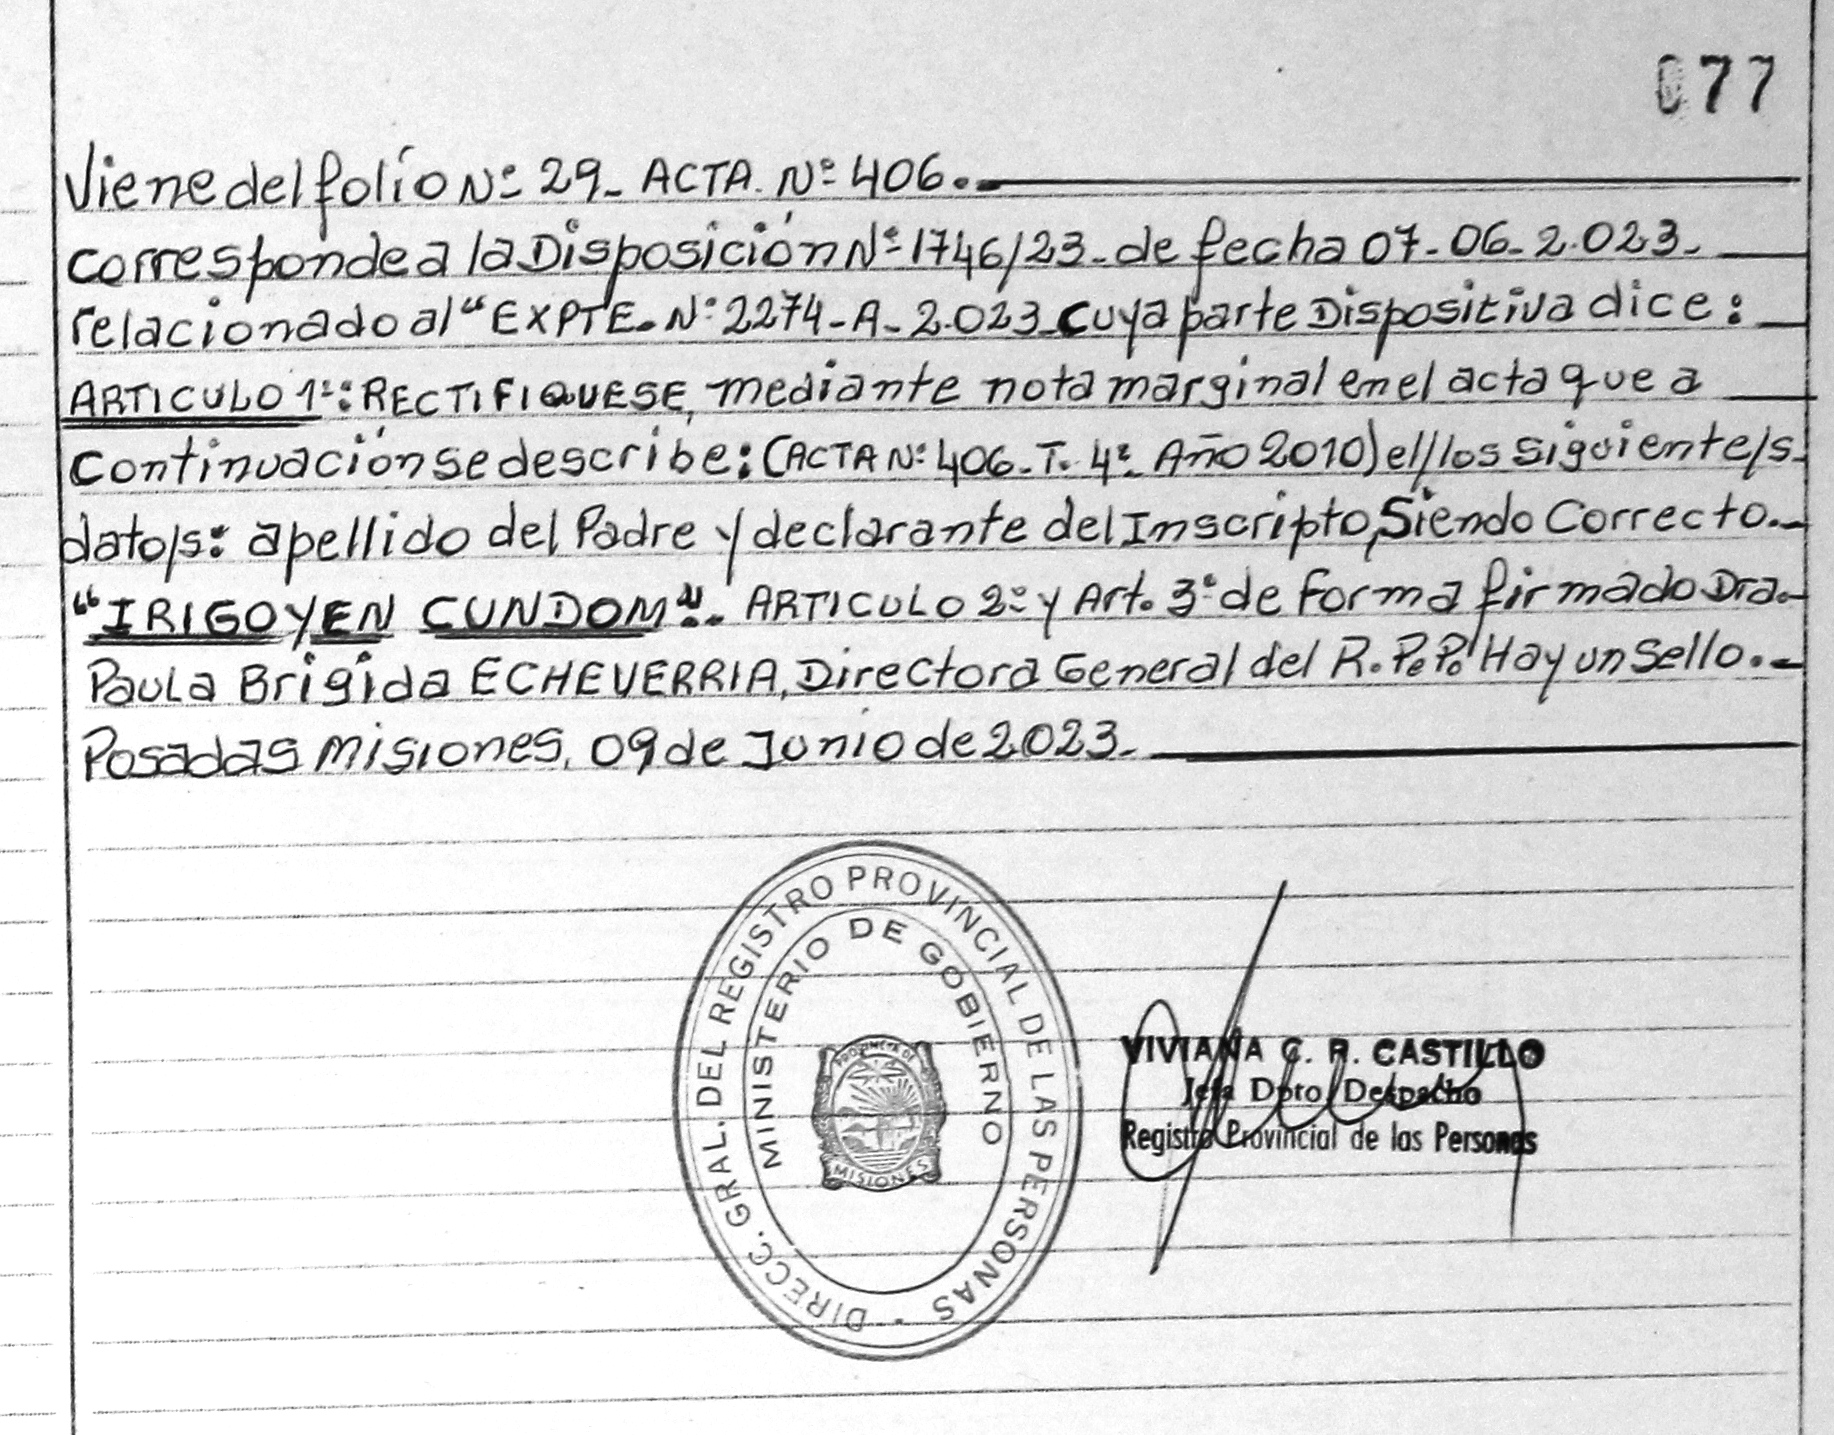 077
Viene del folio Nº 29_ ACTA. Nº 406._
corresponde a la Disposición Nº 1746/23_ de fecha 07-06-2.023._
relacionado al "EXPTE. Nº 2274_A_2.023_cuya parte Dispositiva dice:_
ARTICULO 1º: RECTIFIQUESE, mediante nota marginal en el acta que a
continuación se describe: (ACTA Nº 406_T. 4º Año 2010) el/los siguiente/s.
dato/s: apellido del Padre y declarante del Inscripto, Siendo Correcto._
"IRIGOYEN CUNDOM". ARTICULO 2º y Art. 3º de forma firmado Dra.
Paula Brigida ECHEVERRIA, Directora General del R.P.P. Hay un Sello._
Posadas Misiones, 09 de Junio de 2023._
DIRECC. GRAL. DEL REGISTRO PROVINCIAL DE LAS PERSONAS
MINISTERIO DE GOBIERNO
PROVINCIA DE
MISIONES
VIVIANA C. R. CASTILLO
Jefa Dpto Despacho
Registro Provincial de las Personas